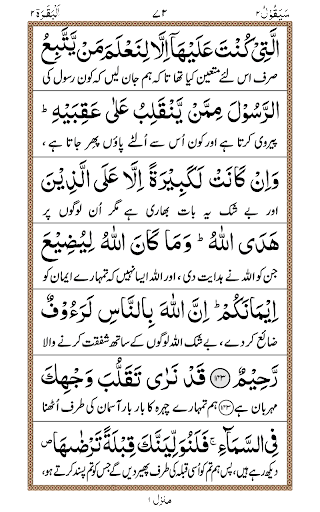 سَيَقُوْلُ ٢ ٧٢ اَلْبَقَرَة ٢
الَّتِيْ كُنْتَ عَلَيْهَاۤ اِلَّا لِنَعْلَمَ مَنْ يَّتَّبِعُ
صرف اس لئے متعین کیا تھا تاکہ ہم جان لیں کہ کون رسول کی
الرَّسُوْلَ مِمَّنْ يَّنْقَلِبُ عَلٰى عَقِبَيْهِ ؕ
پیروی کرتا ہے اور کون اُس سے اُلٹے پاؤں پھر جاتا ہے ،
وَاِنْ كَانَتْ لَكَبِيْرَةً اِلَّا عَلَى الَّذِيْنَ
اور بے شک یہ بات بھاری ہے مگر اُن لوگوں پر
هَدَى اللّٰهُ ؕ وَمَا كَانَ اللّٰهُ لِيُضِيْعَ
جن کو اللہ نے ہدایت دی ، اور اللہ ایسا نہیں کہ تمہارے ایمان کو
اِيْمَانَكُمْ ؕ اِنَّ اللّٰهَ بِالنَّاسِ لَرَءُوْفٌ
ضائع کر دے ، بے شک اللہ لوگوں کے ساتھ شفقت کرنے والا
رَّحِيْمٌ ﴿١٤٣﴾ قَدْ نَرٰى تَقَلُّبَ وَجْهِكَ
مہربان ہے ﴿١٤٣﴾ ہم تمہارے چہرہ کا بار بار آسمان کی طرف اُٹھنا
فِي السَّمَآءِ ۚ فَلَنُوَلِّيَنَّكَ قِبْلَةً تَرْضٰىهَا ۪
دیکھ رہے ہیں ، پس ہم تم کو اُسی قبلہ کی طرف پھیر دیں گے جس کو تم پسند کرتے ہو ،
منزل ١